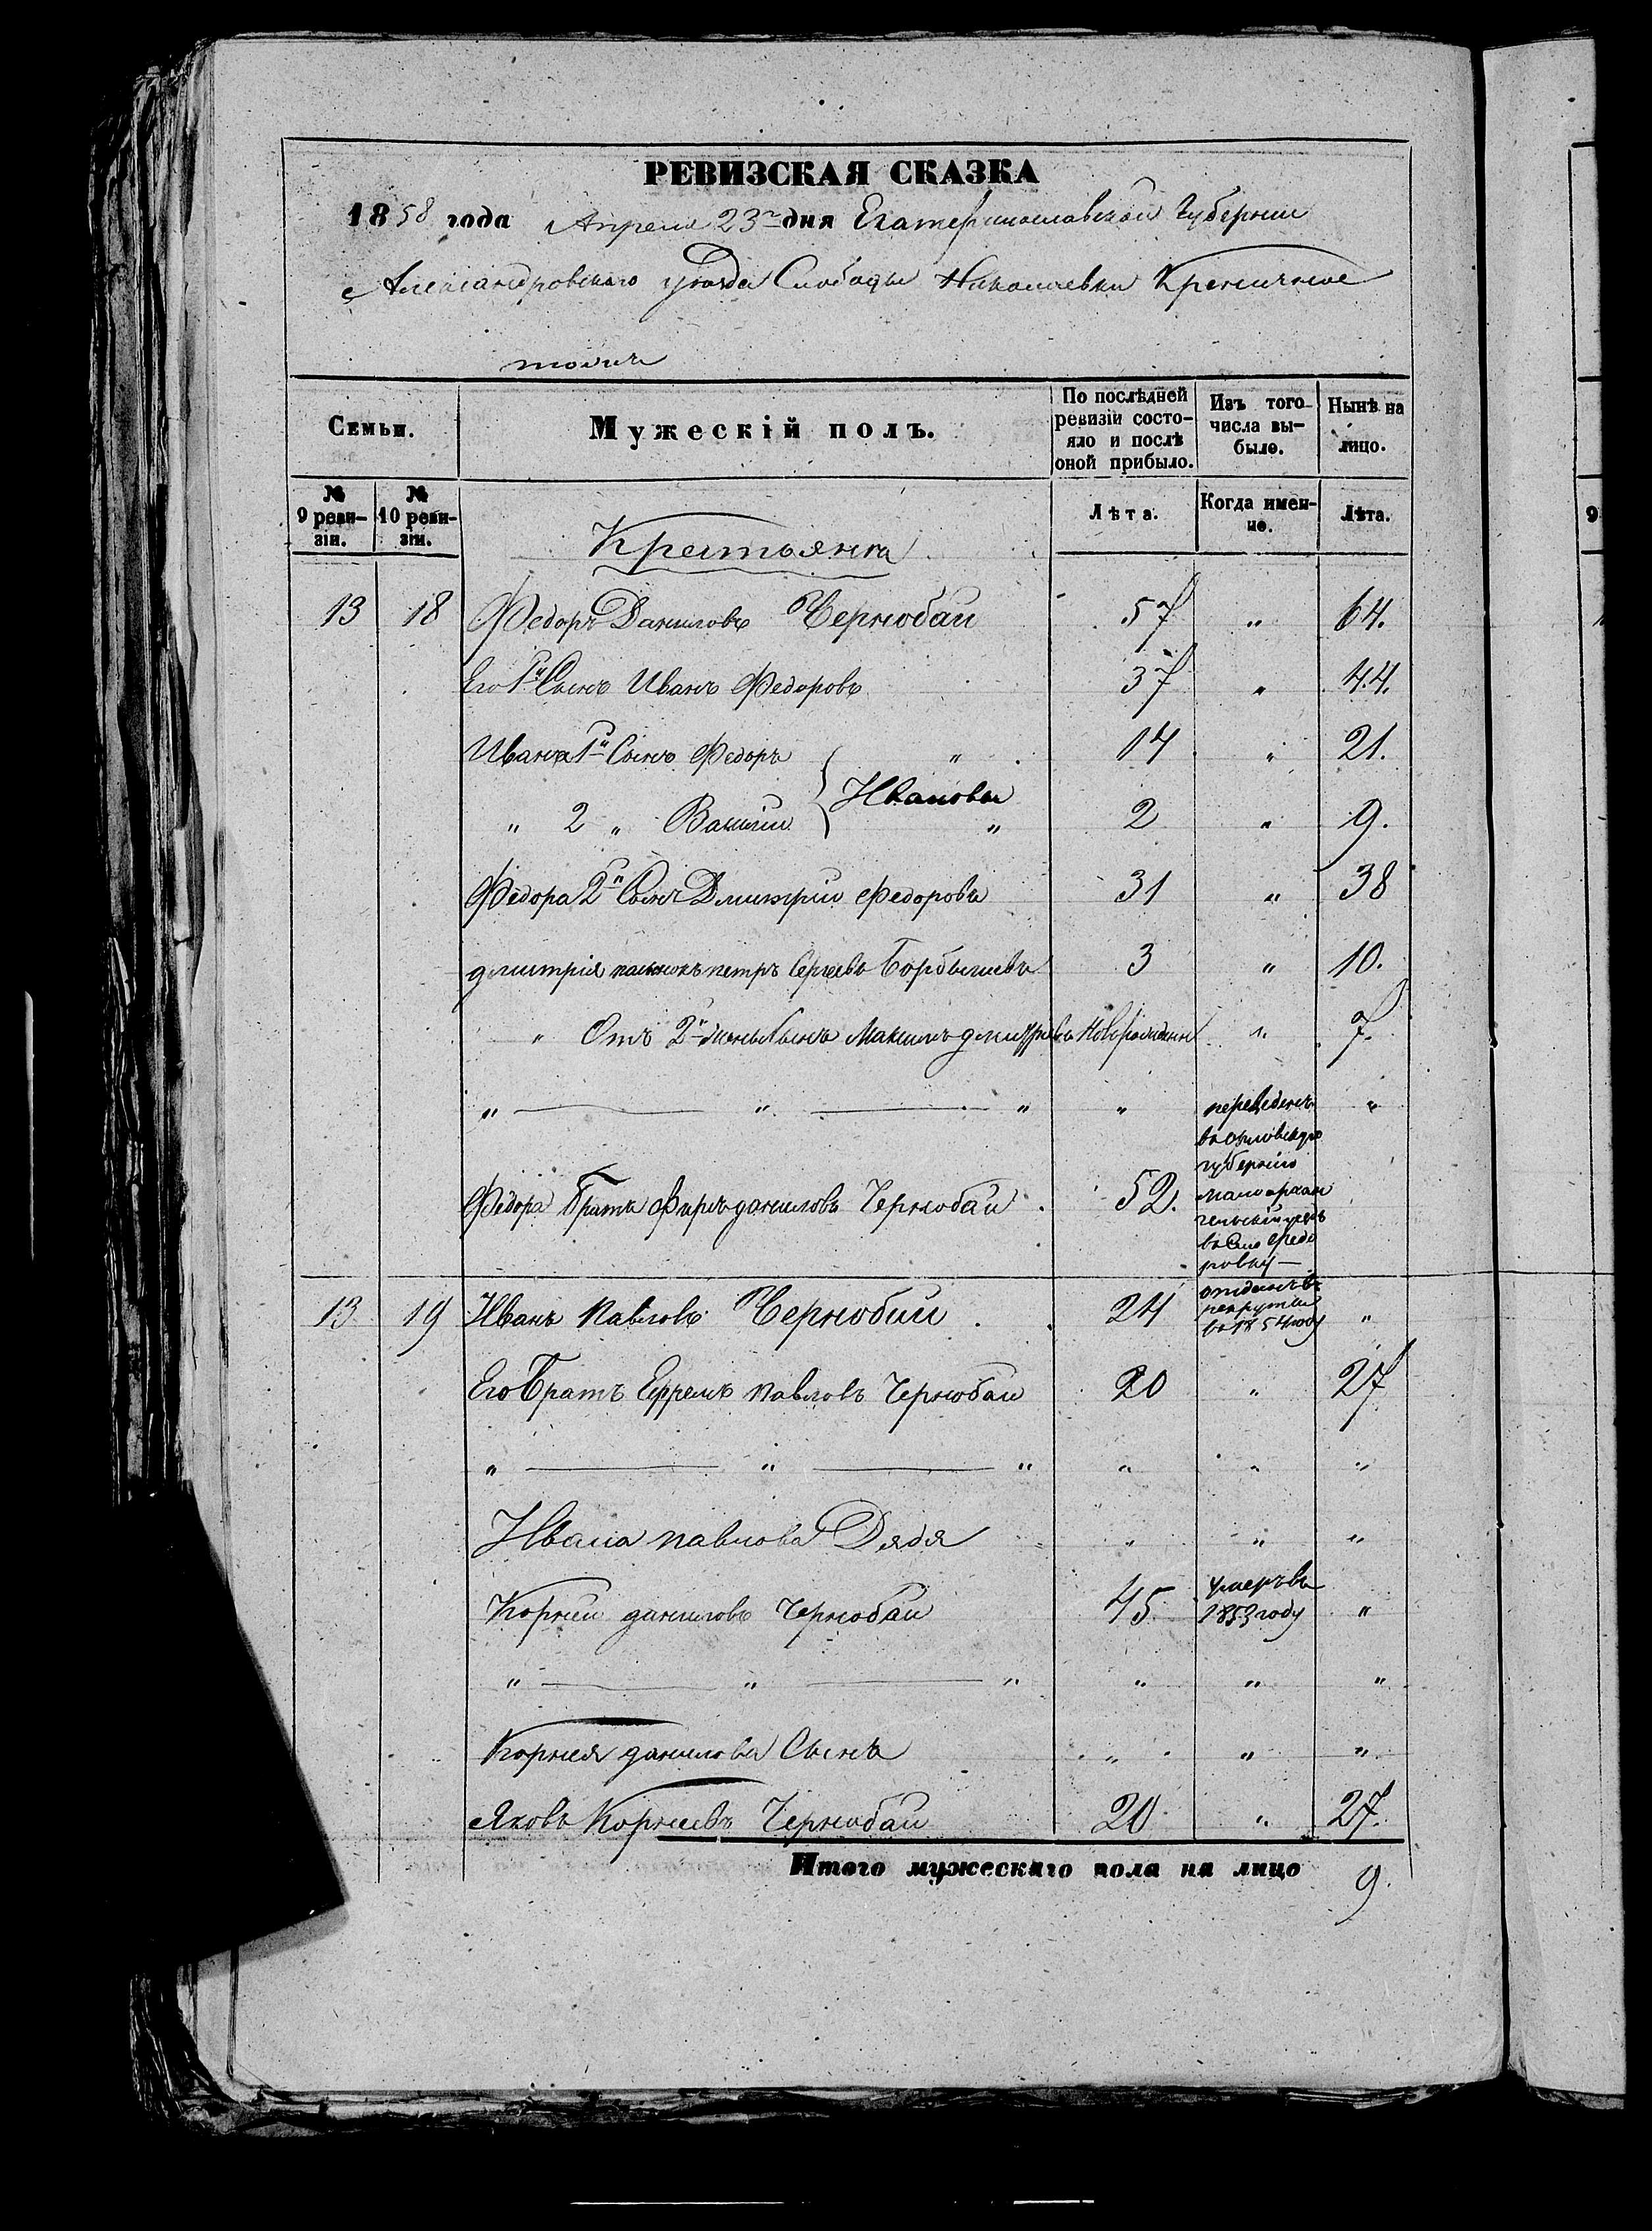 РЕВИЗСКАЯ СКАЗКА
1858 года Апреля 23го дня Екатеринославской Губернии
Александровского уезда Слободы Николаевки Кременчикъ
тожъ
Семьи.
Мужескій полъ.
По послѣдней ревизіи состо-яло и послѣ оной прибыло.
Изъ того числа вы-было.
Нынѣ на лицо.
№ 9 реви-зіи.
№ 10 реви-зіи.
Лѣта.
Когда имен-но.
Лѣта.
Крестьяне
13 18 Федоръ Даниловъ Чернобай 57 " 64.
Его 1й Сынъ Иванъ Федоровъ 37 " 44.
Ивана 1й Сынъ Федоръ " 14 " 21.
Ивановы
" 2 " Василій " 2 " 9.
Федора 2й Сынъ Дмитрій Федоровъ 31 " 38
Дмитрія пасынокъ петръ Сергеевъ 3 " 10.
" Отъ 2й жены Сынъ Максимъ дмитріевъ Новорожденъ " 7.
" " " " переведенъ "
губернію
Федора Братъ даниловъ Чернобай 52.
13 19 Иванъ Павловъ Чернобай 24 отданъ въ рекруты въ 1854 году "
Его Братъ Ефремъ Павловъ Чернобай 20 " 27
" " " " " "
Ивана павлова Дядя " " "
Корній даниловъ Чернобай 45 умеръ въ 1853 году "
" " " " " "
Корнея данилова Сынъ " " "
Яковъ Корнеевъ Чернобай 20 " 27.
Итого мужескаго пола на лицо 9.
9